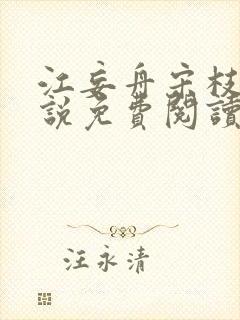 江妄舟宋枝
說免費閱讀
汪永清